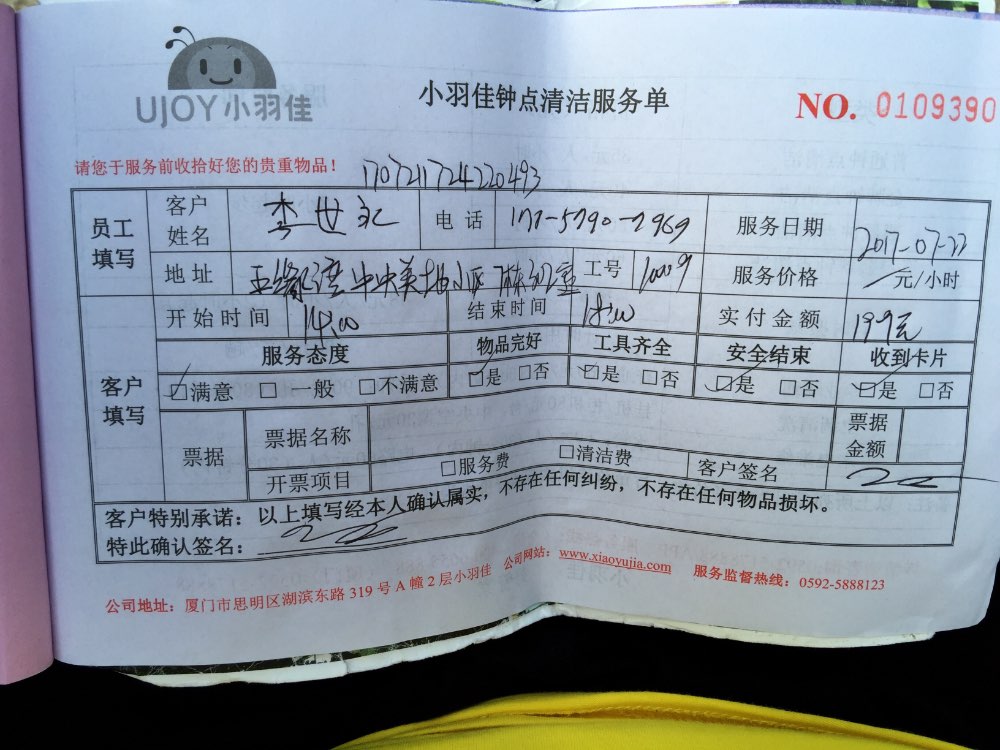 UJOY小羽佳
小羽佳钟点清洁服务单
NO. 0109390
请您于服务前收拾好您的贵重物品！
170721724220493
员工填写 客户姓名 李世 电话 服务日期 2017-07-22
地址 中央美地小区 工号 服务价格 元/小时
客户填写 开始时间 14:00 结束时间 18:00 实付金额 199元
服务态度 物品完好 工具齐全 安全结束 收到卡片
☑满意 □一般 □不满意 ☑是 □否 ☑是 □否 ☑是 □否 ☑是 □否
票据 票据名称 票据金额
开票项目 □服务费 □清洁费 客户签名
客户特别承诺：以上填写经本人确认属实，不存在任何纠纷，不存在任何物品损坏。
特此确认签名：
公司地址：厦门市思明区湖滨东路319号A幢2层小羽佳 公司网站：www.xiaoyujia.com 服务监督热线：0592-5888123